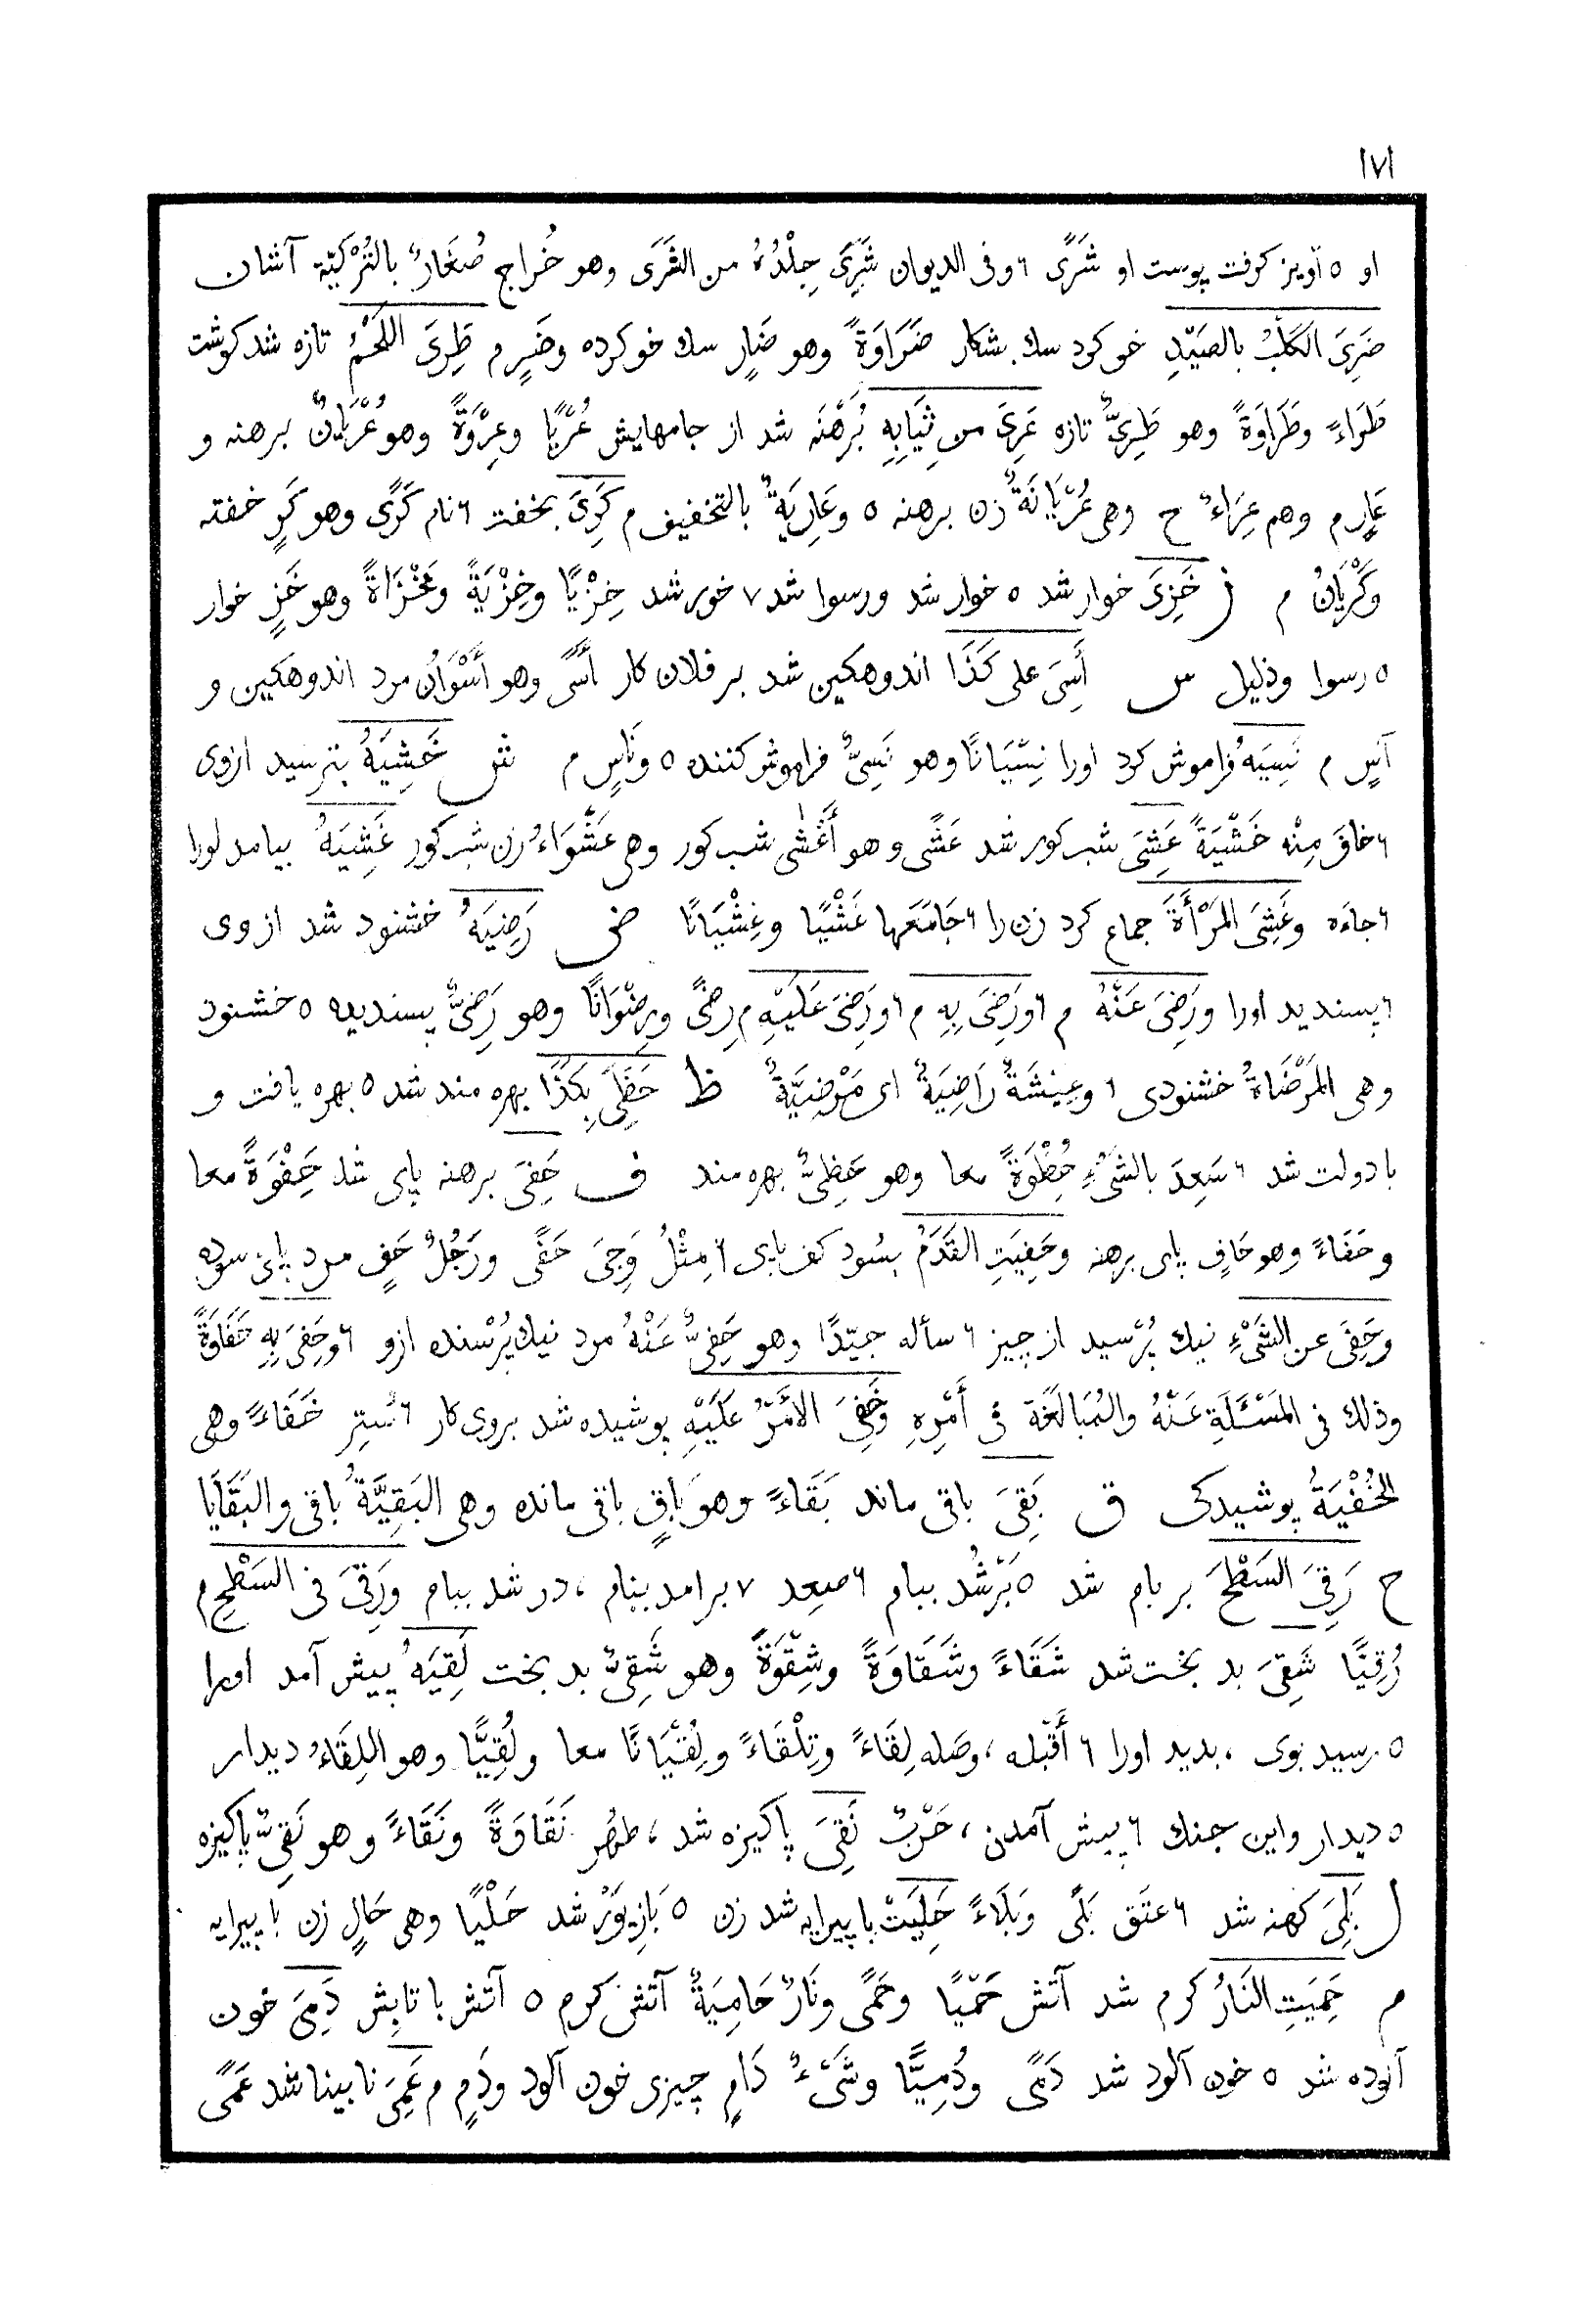 ١٧١
او ٥ آویز کرفت پوست او شَرًى ٦ وفى الديوان شَرِىَ جِلْدُهُ من الشَرَى وهو خُراج صُغَارٌ بالتُرْكيّة آشان
ضَرِىَ الكَلْبُ بالصَيْدِ خو كرد سك بشكار ضَرَاوَةً وهو ضَارٍ سك خو كرده وضَرٍ م طَرِىَ اللَحْمُ تازه شد كوشت
طَرَاءً وطَرَاوَةً وهو طَرِىٌّ تازه عَرِىَ من ثِيَابِهِ بُرَهْنَه شد از جامهايش عُرْيًا وعِرْوَةً وهو عُرْيَانٌ برهنه و
عَارٍ م وهم عِرَاءٌ ح وهى عُرْيَانَةٌ زن برهنه ٥ وعَارِيَةٌ بالتخفيف م كَرِىَ بخفت ٦ نام كَرًى وهو كَرٍ خفته
وكَرْيَانُ م ز خَزِىَ خوار شد ٥ خوار شد ورسوا شد ٧ خور شد خِزْيًا وخِزْيَةً ومَخْزَاةً وهو خَزٍ خوار
٥ رسوا وذليل س أَسِىَ على كَذَا اندوهكين شد بر فلان كار أَسًى وهو أَسْوَانُ مرد اندوهكين و
آسٍ م نَسِيَهُ فراموش كرد اورا نِسْيَانًا وهو نَسِىٌّ فراموش كننده ٥ ونَاسٍ م ش خَشِيَهُ بترسيد ازوى
٦ خافَ مِنْه خَشْيَةً عَشِىَ شب كور شد عَشًى وهو أَعْشَى شب كور وهى عَشْوَاءُ زن شب كور غَشِيَهُ بيامد اورا
٦ جاءَه وغَشِىَ المَرْأَةَ جماع كرد زن را ٦ جَامَعَها غَشْيًا وغِشْيَانًا ض رَضِيَهُ خشنود شد از وى
٦ پسنديد اورا ورَضِىَ عَنْهُ م ٦ ورَضِىَ بِهِ م ٦ ورَضِىَ عَلَيْهِ م رِضًى ورِضْوَانًا وهو رَضِىٌّ پسنديده ٥ خشنود
وهى المَرْضَاةُ خشنودى ٦ وعِيْشَةٌ رَاضِيَةٌ اى مَرْضِيَّةٌ ظ حَظِىَ بِكَذَا بهره مند شد ٥ بهره يافت و
با دولت شد ٦ سَعِدَ بالشَىْءِ حُِظْوَةً معا وهو حَظِىٌّ بهره مند ف حَفِىَ برهنه پاى شد حِفْوَةً معا
وحَفَاءً وهو حَافٍ پاى برهنه وحَفِيَتِ القَدَمُ بسُود كف پاى ٦ مِثْلُ وَجِىَ حَفًى ورَجُلٌ حَفٍ مرد پاى سوده
وحَفِىَ عن الشَىْءِ نيك پُرْسيد از چيز ٦ سأله جيّدًا وهو حَفِىٌّ عَنْهُ مرد نيك پُرْسنده ازو ٦ وحَفِىَ بِهِ حَفَاوَةً
وذلك فى المَسْئَلَةِ عَنْهُ والمُبَالَغَة فى أَمْرِهِ وخَفِىَ الأَمْرُ عَلَيْهِ پوشيده شد بروى كار ٦ سُتِرَ خَفَاءً وهى
الخُفْيَةُ پوشيدكى ق بَقِىَ باقى ماند بَقَاءً وهو بَاقٍ باقى مانده وهى البَقِيَّةُ باقى والبَقَايَا
ح رَقِىَ السَطْحَ بر بام شد ٥ بَرْشُد ببام ٦ صعد ٧ برامد ببام ، در شد ببام ورَقِىَ فى السَطْحِ م
رُقِيًّا شَقِىَ بد بخت شد شَقَاءً وشَقَاوَةً وشِقْوَةً وهو شَقِىٌّ بد بخت لَقِيَهُ پيش آمد اورا
٥ رسيد بوى ، بديد اورا ٦ أَقْبَله ، وصَله لِقَاءً وتِلْقَاءً ولُِقْيَانًا معا ولُقِيًّا وهو اللِقَاءُ ديدار
٥ ديدار واين جنك ٦ پيش آمدن ، حَرْبٌ نَقِىَ پاكيزه شد ، طهُر نَقَاوَةً ونَقَاءً وهو نَقِىٌّ پاكيزه
ل بَلِىَ كهنه شد ٦ عتَق بَلًى وبَلَاءً حَلِيَتْ با پيرايه شد زن ٥ بَازِيوَرْ شد حَلْيًا وهى حَالٍ زن با پيرايه
م حَمِيَتِ النَارُ كرم شد آتش حَمْيًا وحَمًى ونَارٌ حَامِيَةٌ آتش كرم ٥ آتش با تابِش دَمِىَ خون
آلوده شد ٥ خون آلود شد دَمًى ودُمِيًّا وشَىْءٌ دَامٍ چيزى خون آلود ودَمٍ م عَمِىَ نا بينا شد عَمًى